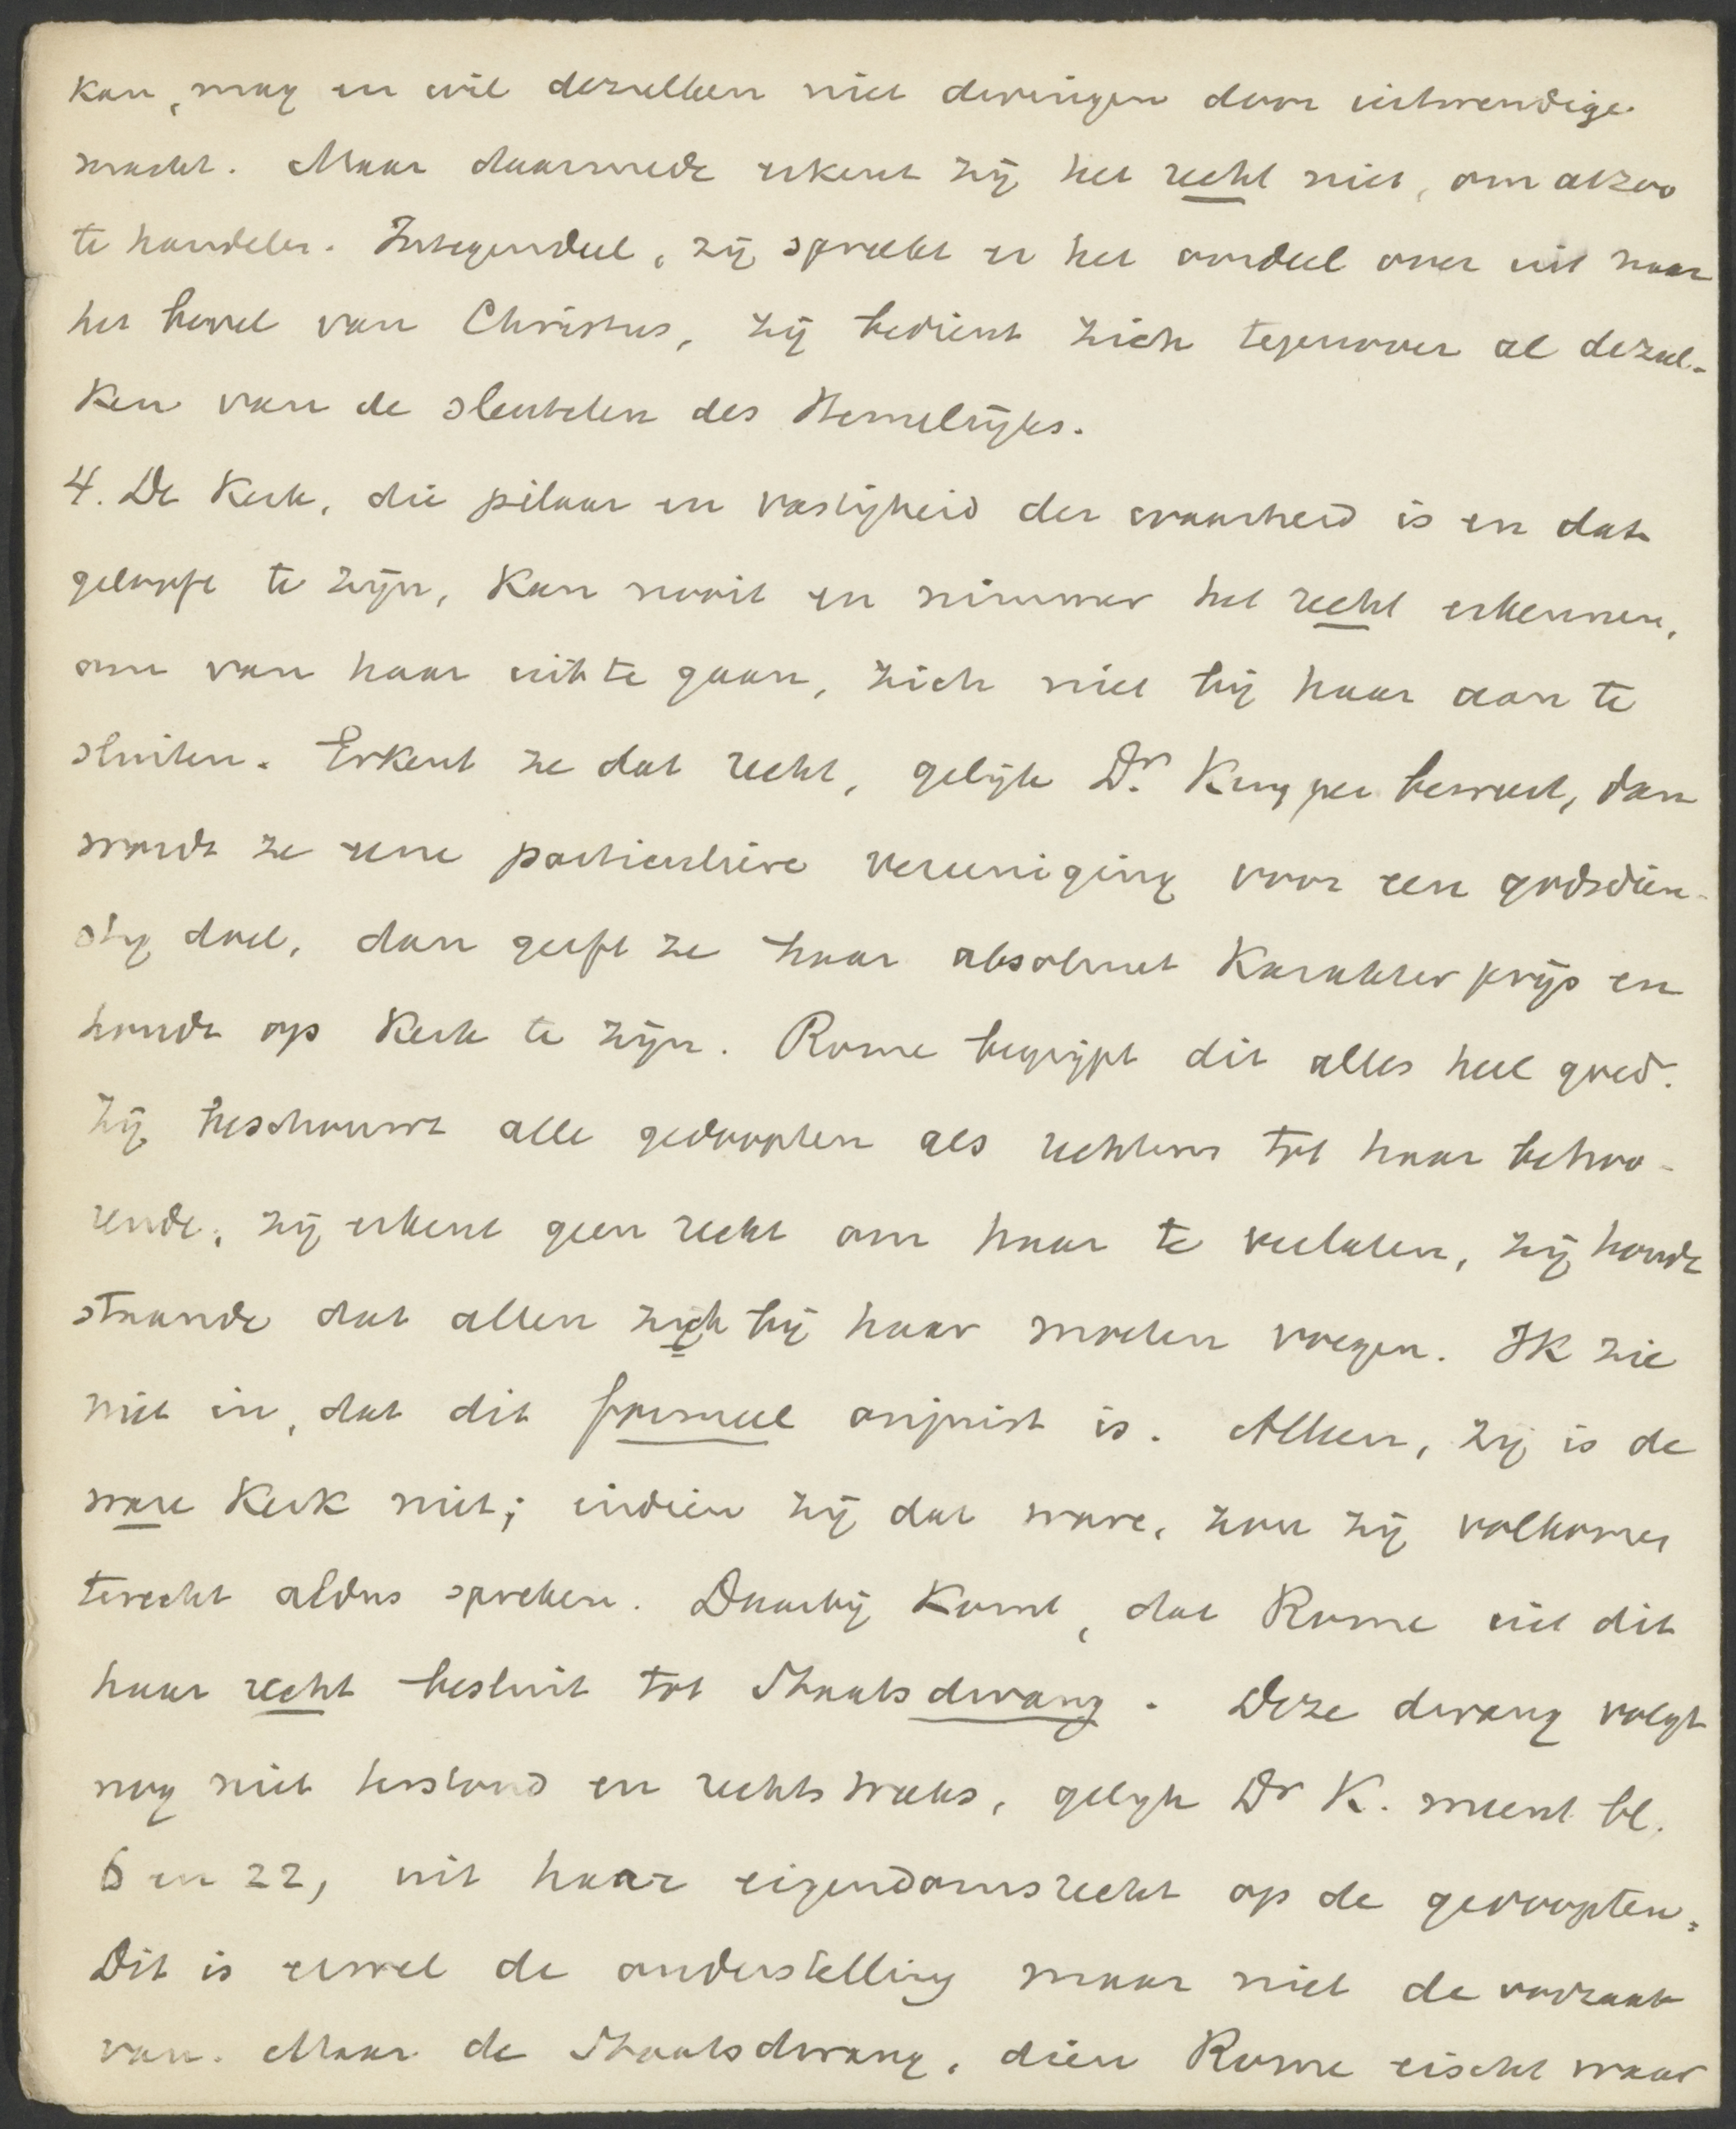 kan, mag en wil dezulken niet dwingen door uitwendige
macht. Maar daarmede erkent zij het recht niet, om alzoo
te handelen. Integendeel, zij spreekt er het oordeel over uit naar
het bevel van Christus, zij bedient zich tegenover al dezul-
ken van de sleutelen des Hemelrijks.
4. De Kerk, die pilaar en vastigheid der waarheid is en dat
gelooft te zijn, kan nooit en nimmer het recht erkennen,
om van haar uit te gaan, zich niet bij haar aan te
sluiten. Erkent ze dat recht, gelijk Dr. Kuyper beweert, dan
wordt ze eene particuliere vereeniging voor een godsdien-
stig doel, dan geeft ze haar absoluut karakter prijs en
houdt op Kerk te zijn. Rome begrijpt dit alles heel goed.
Zij beschouwt alle gedoopten als rechtens tot haar behoo-
rende, zij erkent geen recht om haar te verlaten, zij houdt
staande dat allen zich bij haar moeten voegen. Ik zie
niet in, dat dit formeel onjuist is. Alleen, zij is de
ware Kerk niet; indien zij dat ware, zou zij volkomen
terecht aldus spreken. Daarbij komt, dat Rome uit dit
haar recht besluit tot Staatsdwang. Deze dwang volgt
nog niet terstond en rechtstreeks, gelijk Dr K. meent bl.
6 en 22, uit haar eigendomsrecht op de gedoopten.
Dit is er wel de onderstelling maar niet de oorzaak
van. Maar de Staatsdwang, dien Rome eischt waar